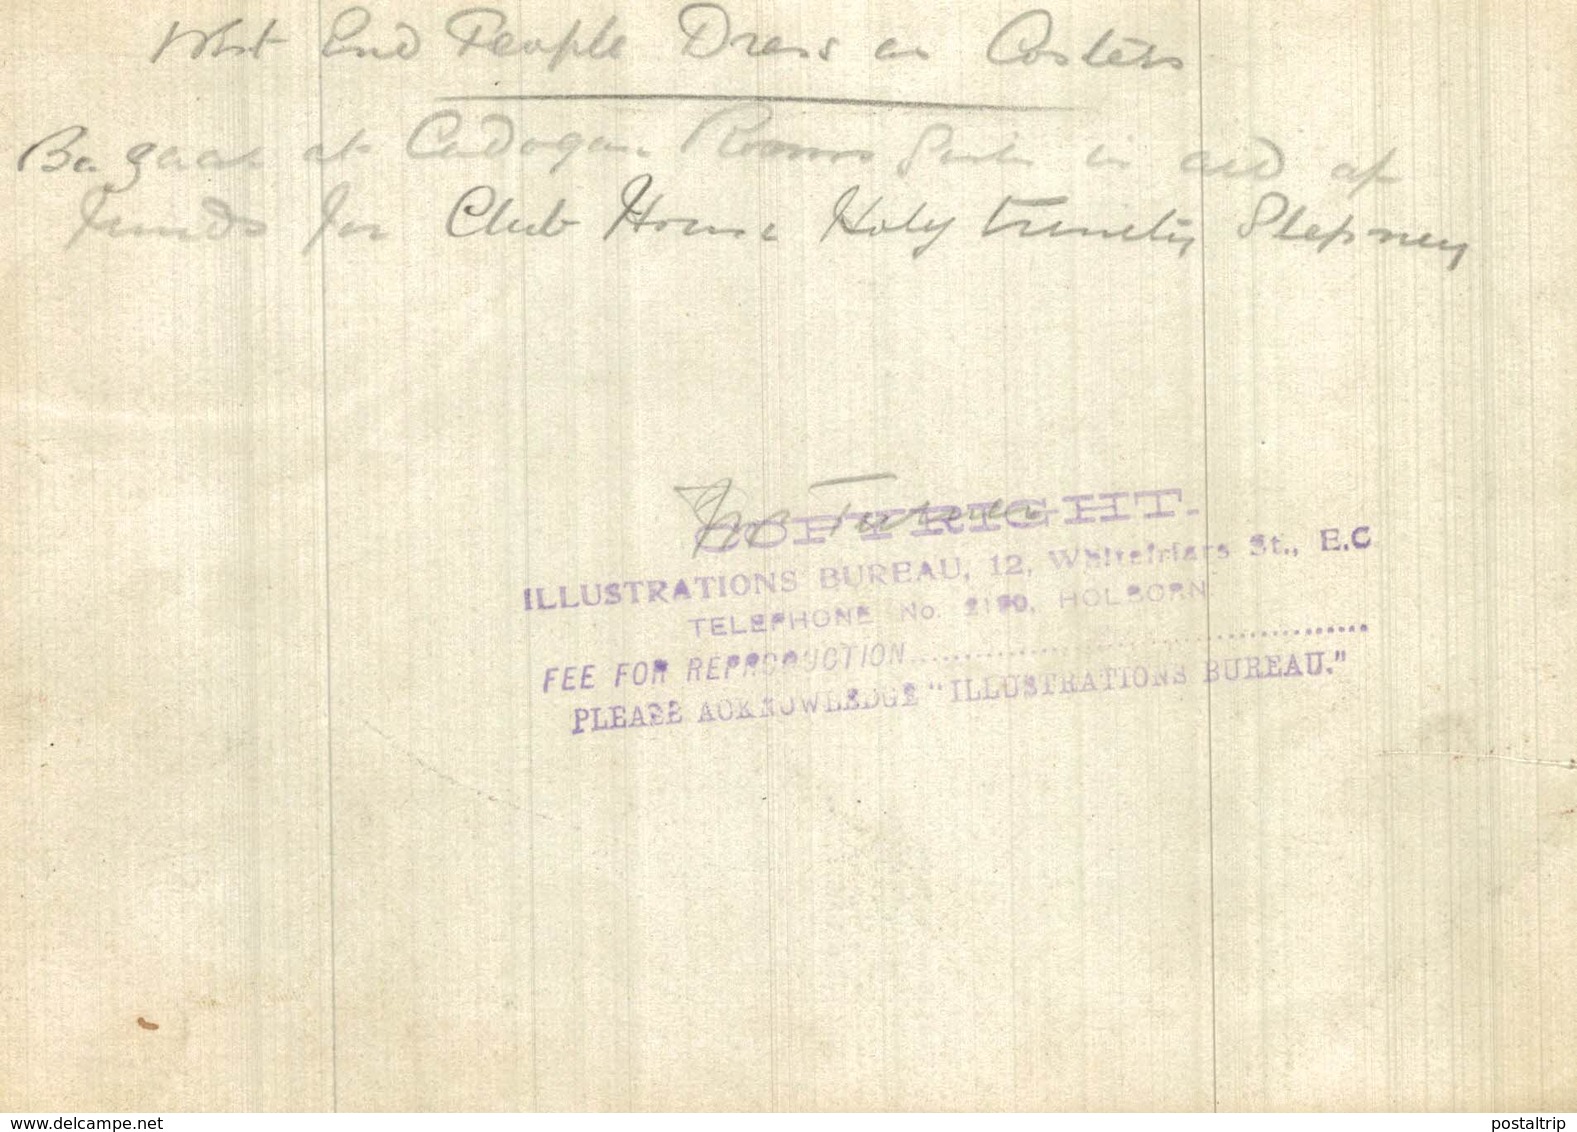 West End People Dress as Costers
Bazaar at Cadogan Rooms in aid of
funds for Club House Holy Trinity Stepney
Turner
COPYRIGHT.
ILLUSTRATIONS BUREAU, 12, Whitefriars St., E.C
TELEPHONE No. 2190, HOLBORN
FEE FOR REPRODUCTION
PLEASE ACKNOWLEDGE "ILLUSTRATIONS BUREAU."
www.delcampe.net
postaltrip